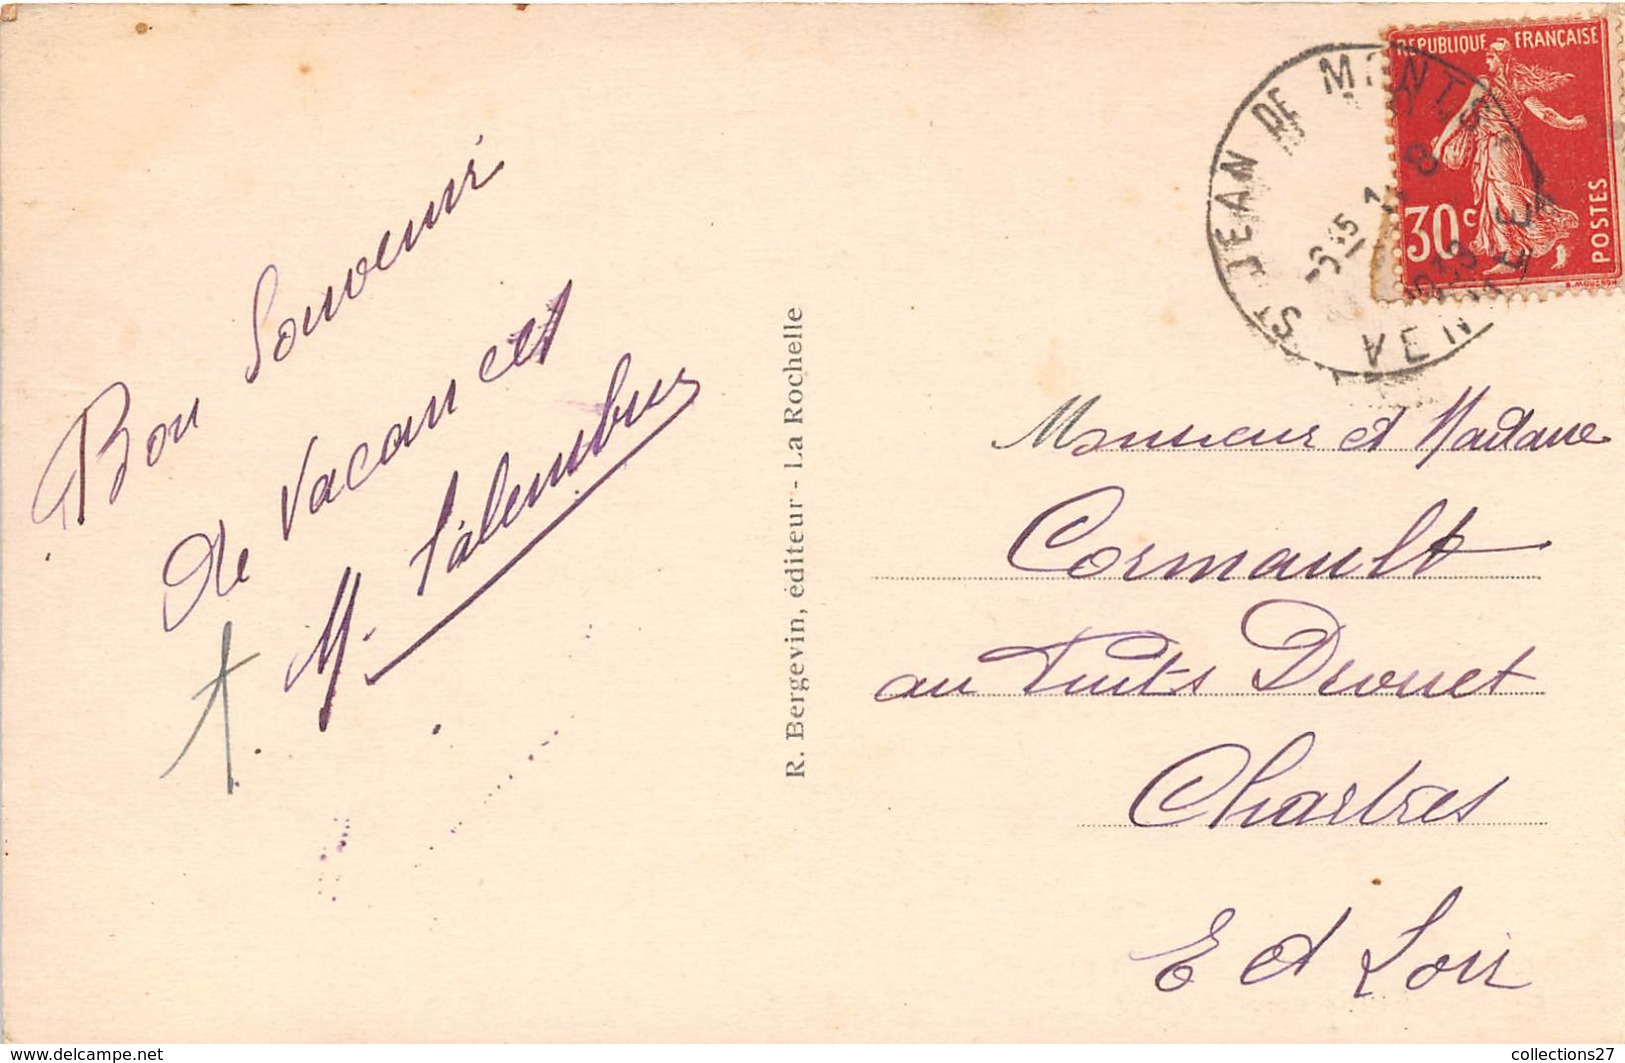 Bon Souvenir
de vacances
M.
R. Bergevin, éditeur - La Rochelle
RÉPUBLIQUE FRANÇAISE
30c
POSTES
ST JEAN DE MONTS
VENDEE
Monsieur et Madame
Cormault
au Puits Drouet
Chartres
E et Loir
www.delcampe.net
collections27